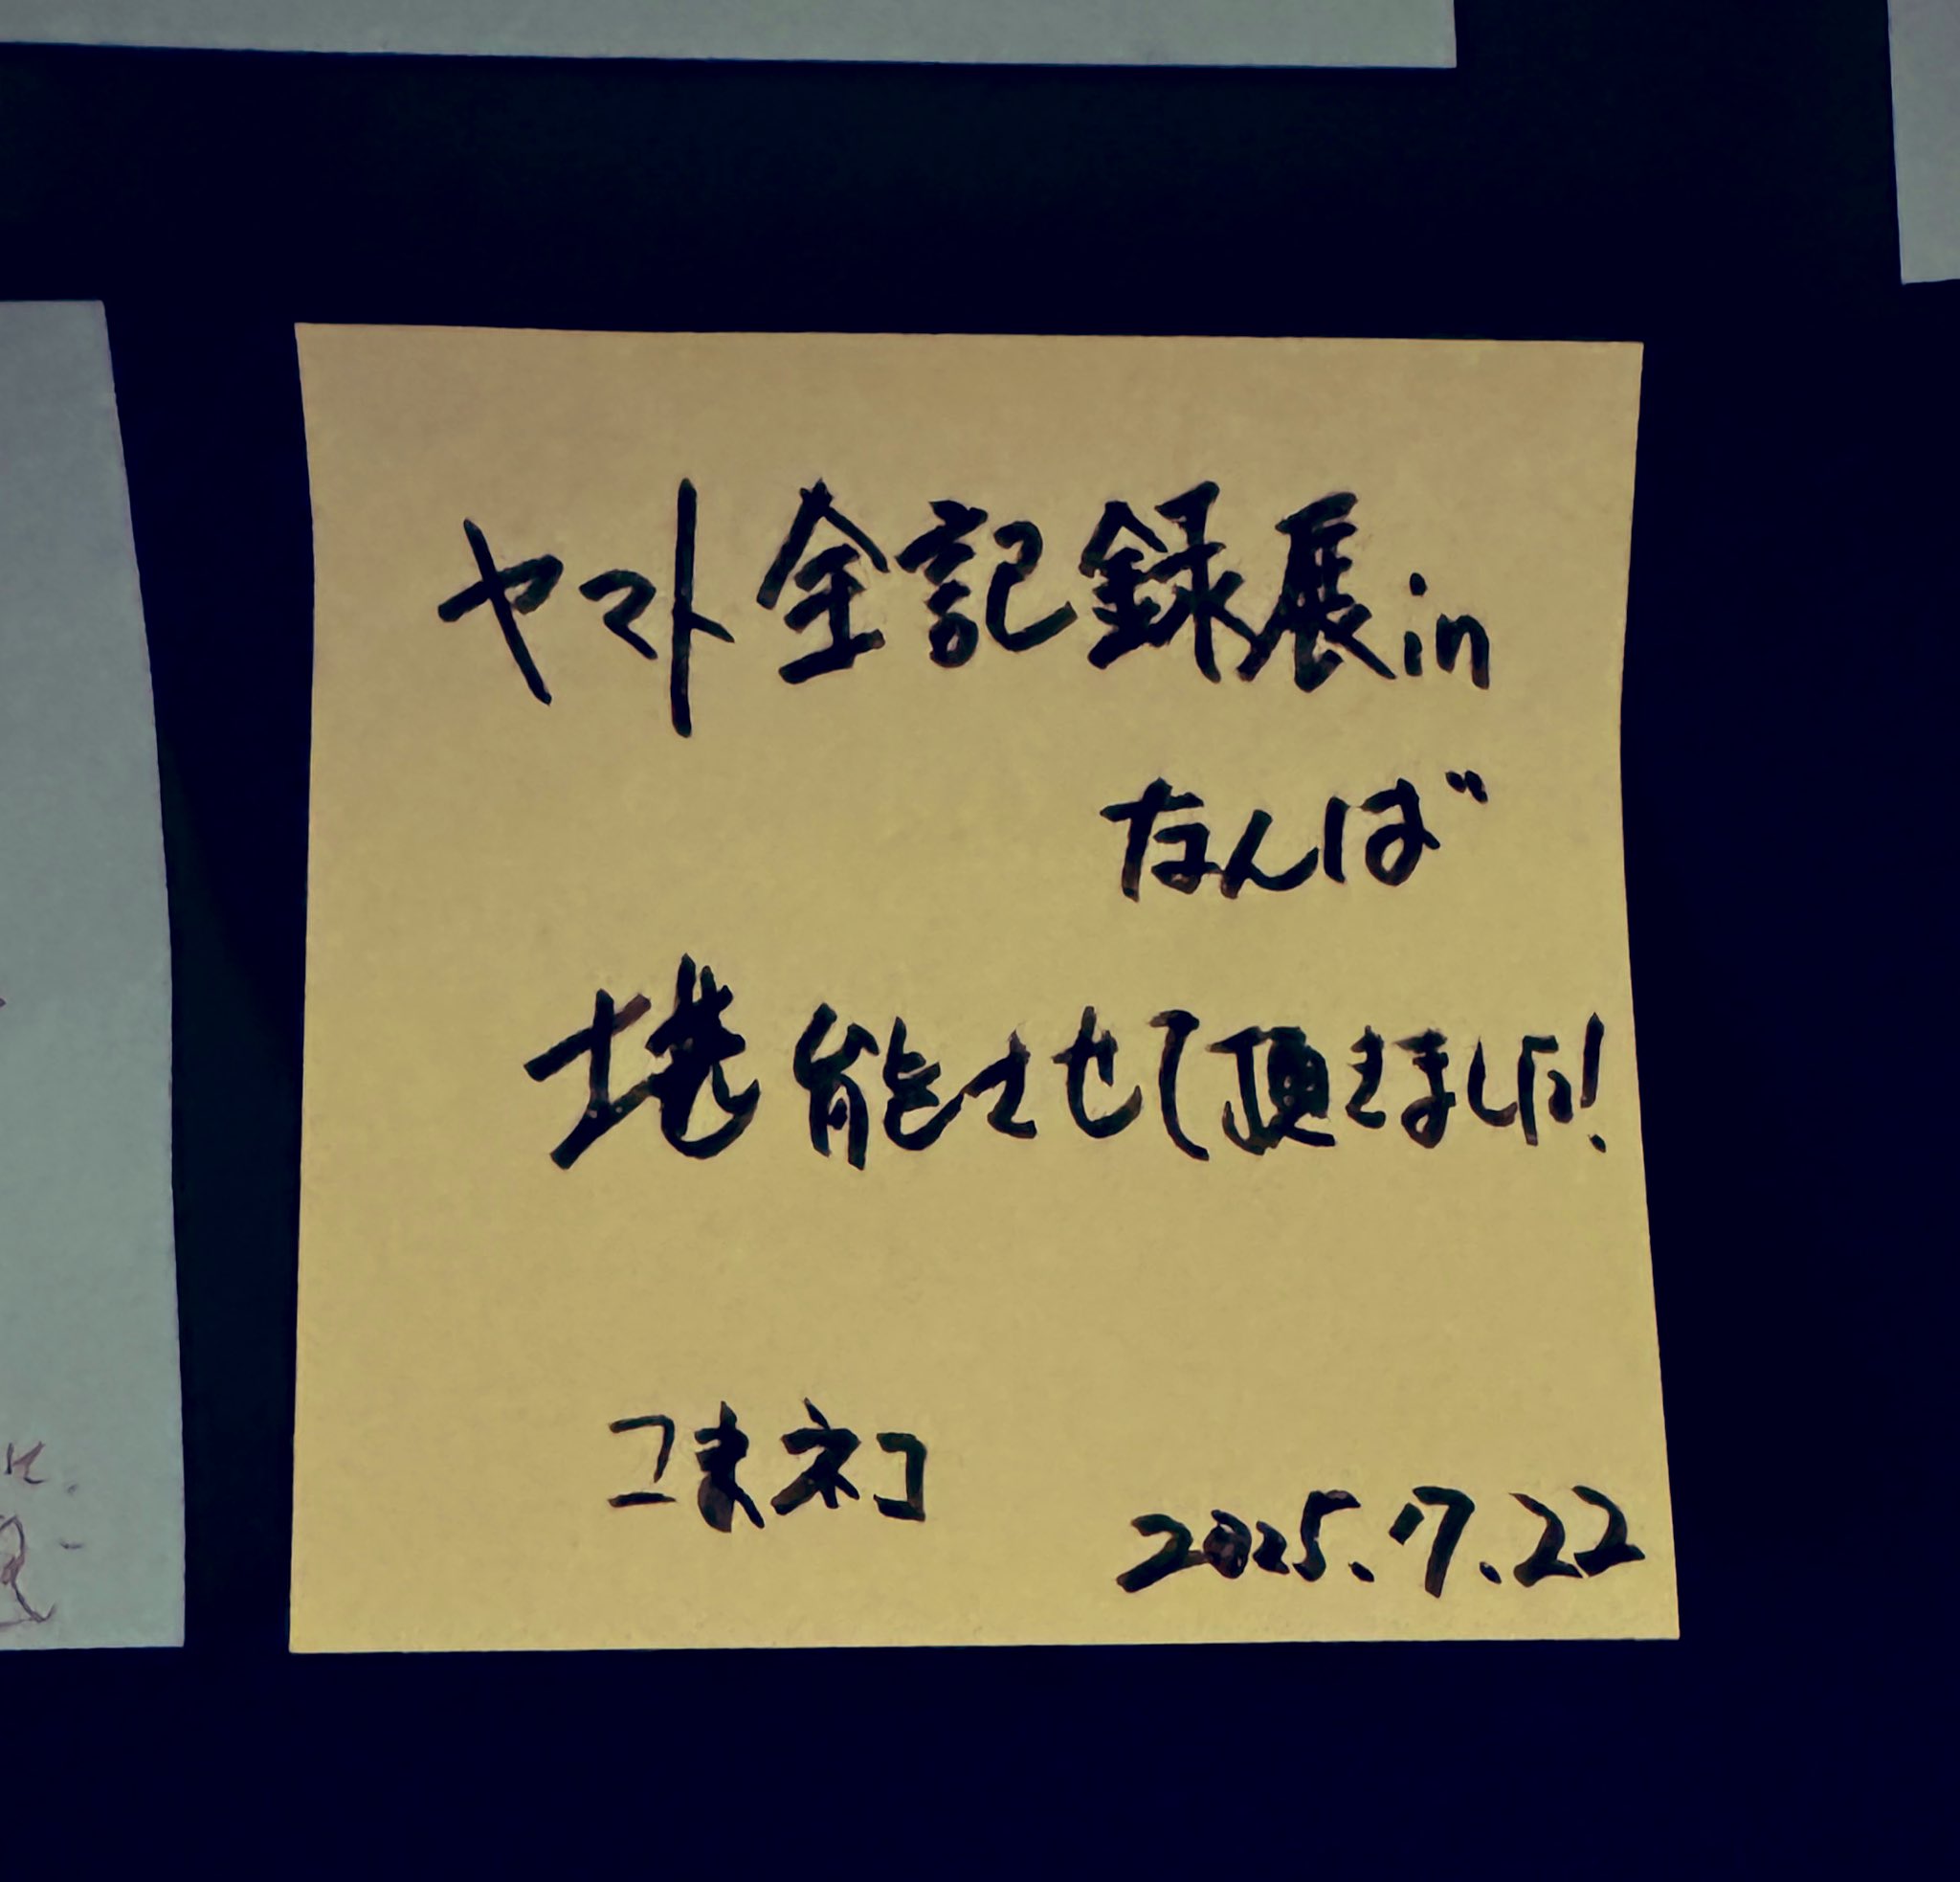 ヤマト全記録展in
なんば
堪能させて頂きました!
2025.7.22